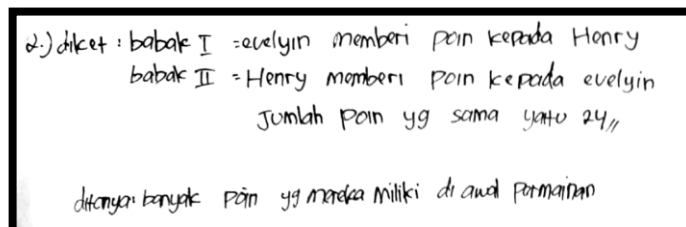 2.) diket : babak I = evelyin memberi poin kepada Henry
babak II = Henry memberi poin kepada evelyin
Jumlah poin yg sama yaitu 24 //
ditanya: banyak poin yg mereka miliki di awal permainan